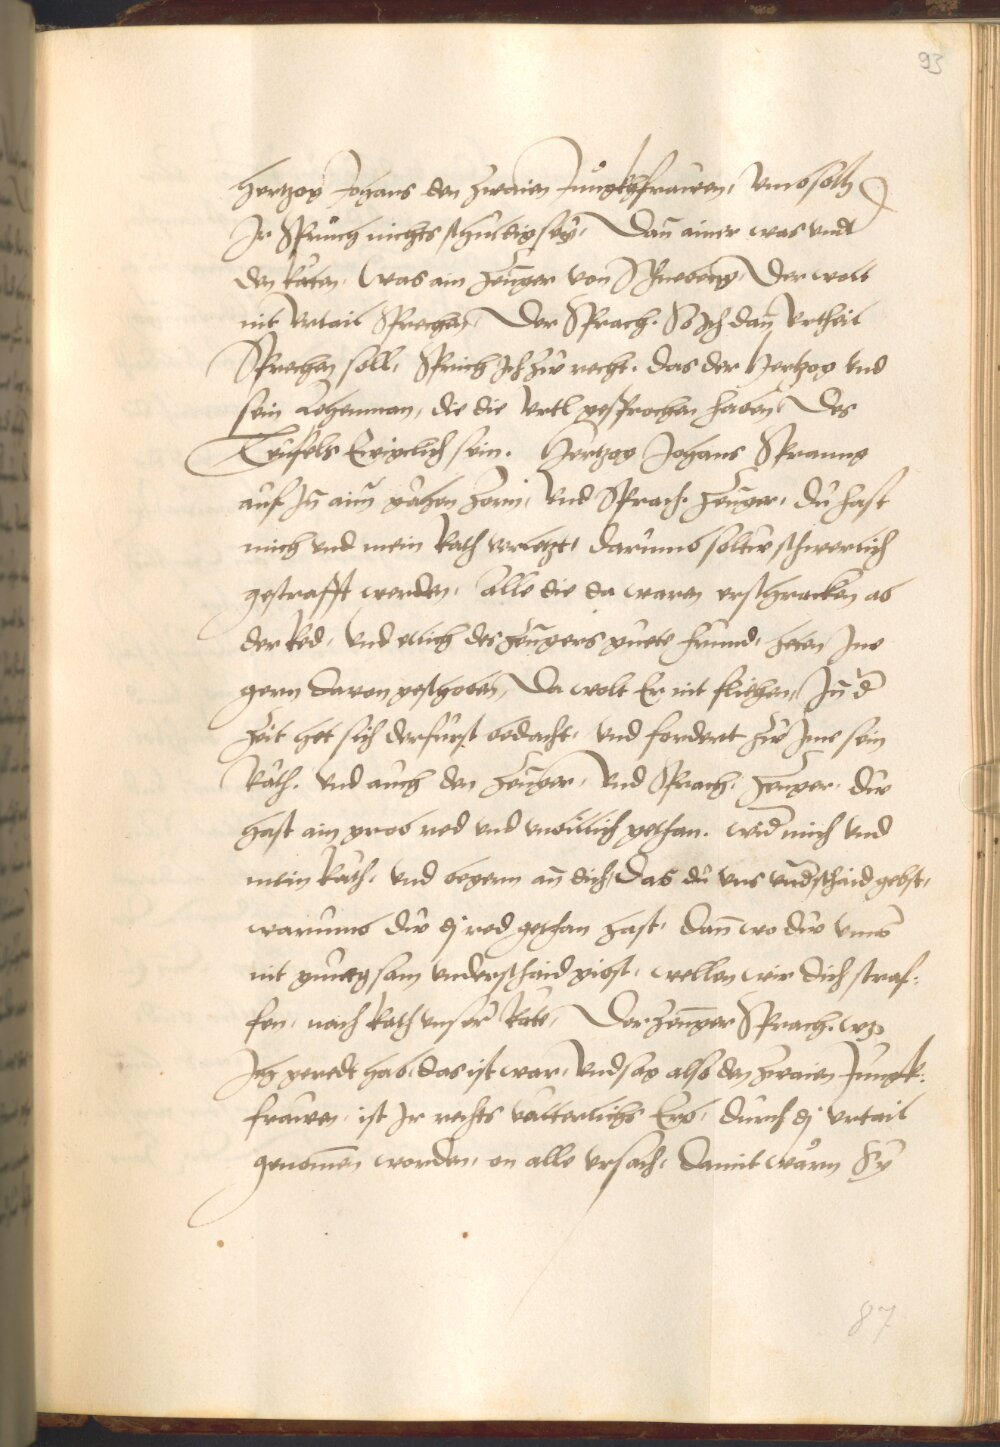 93
Hertzog Johans den zwaien Jungkhfrawen, vmb söllh
Jr Sprüch nichts schuldig sey, Dan ainer was vndter
den Räten. Was ain Zenger von Schneeberg, Der wolt
nit Vrtail Sprechen, Der Sprach. So Jch dann Vrthail
Sprechen soll, Sprich Jch zu recht. das der Hertzog vnd
sein Lehenman, die die Vrtl gesprochen haben, Des
Teufels Ewigclich sein. Hertzog Johans Spranng
auf Jn aim gähen Zorn, vnd Sprach. Zennger, du hast
mich vnd mein Rath verletzt, darumb soltu schwerlich
gestrafft werden, Alle die da waren erschracken ab
der Red, vnd etlich des Zengers guete freund, heten Jne
gern davon geschoben, Da wolt Er nit fliehen, Jn der
Zeit het sich der fürst bedacht, vnd fordert zu Jme sein
Räth. vnd auch den Zennger, vnd Sprach. Zennger. du
hast ain grob red vnd vnbillich gethan. wider mich vnd
mein Räth, vnd begern an dich, Das du vns vnderschaid gebst,
warumb du dj red gethan hast, dann wo du vnns
nit gnuegsam vnderschaid gibst, wellen wir dich straf=
fen, nach Rath vnser Räte, Der Zennger Sprach. was
Jch geredt hab, das ist war, vnd sag also den zwaien Jungk=
frawen, ist Jr rechts väterlichs Erb, durch dj vrtail
genomen worden, on alle vrsach, damit wärn Sy
87